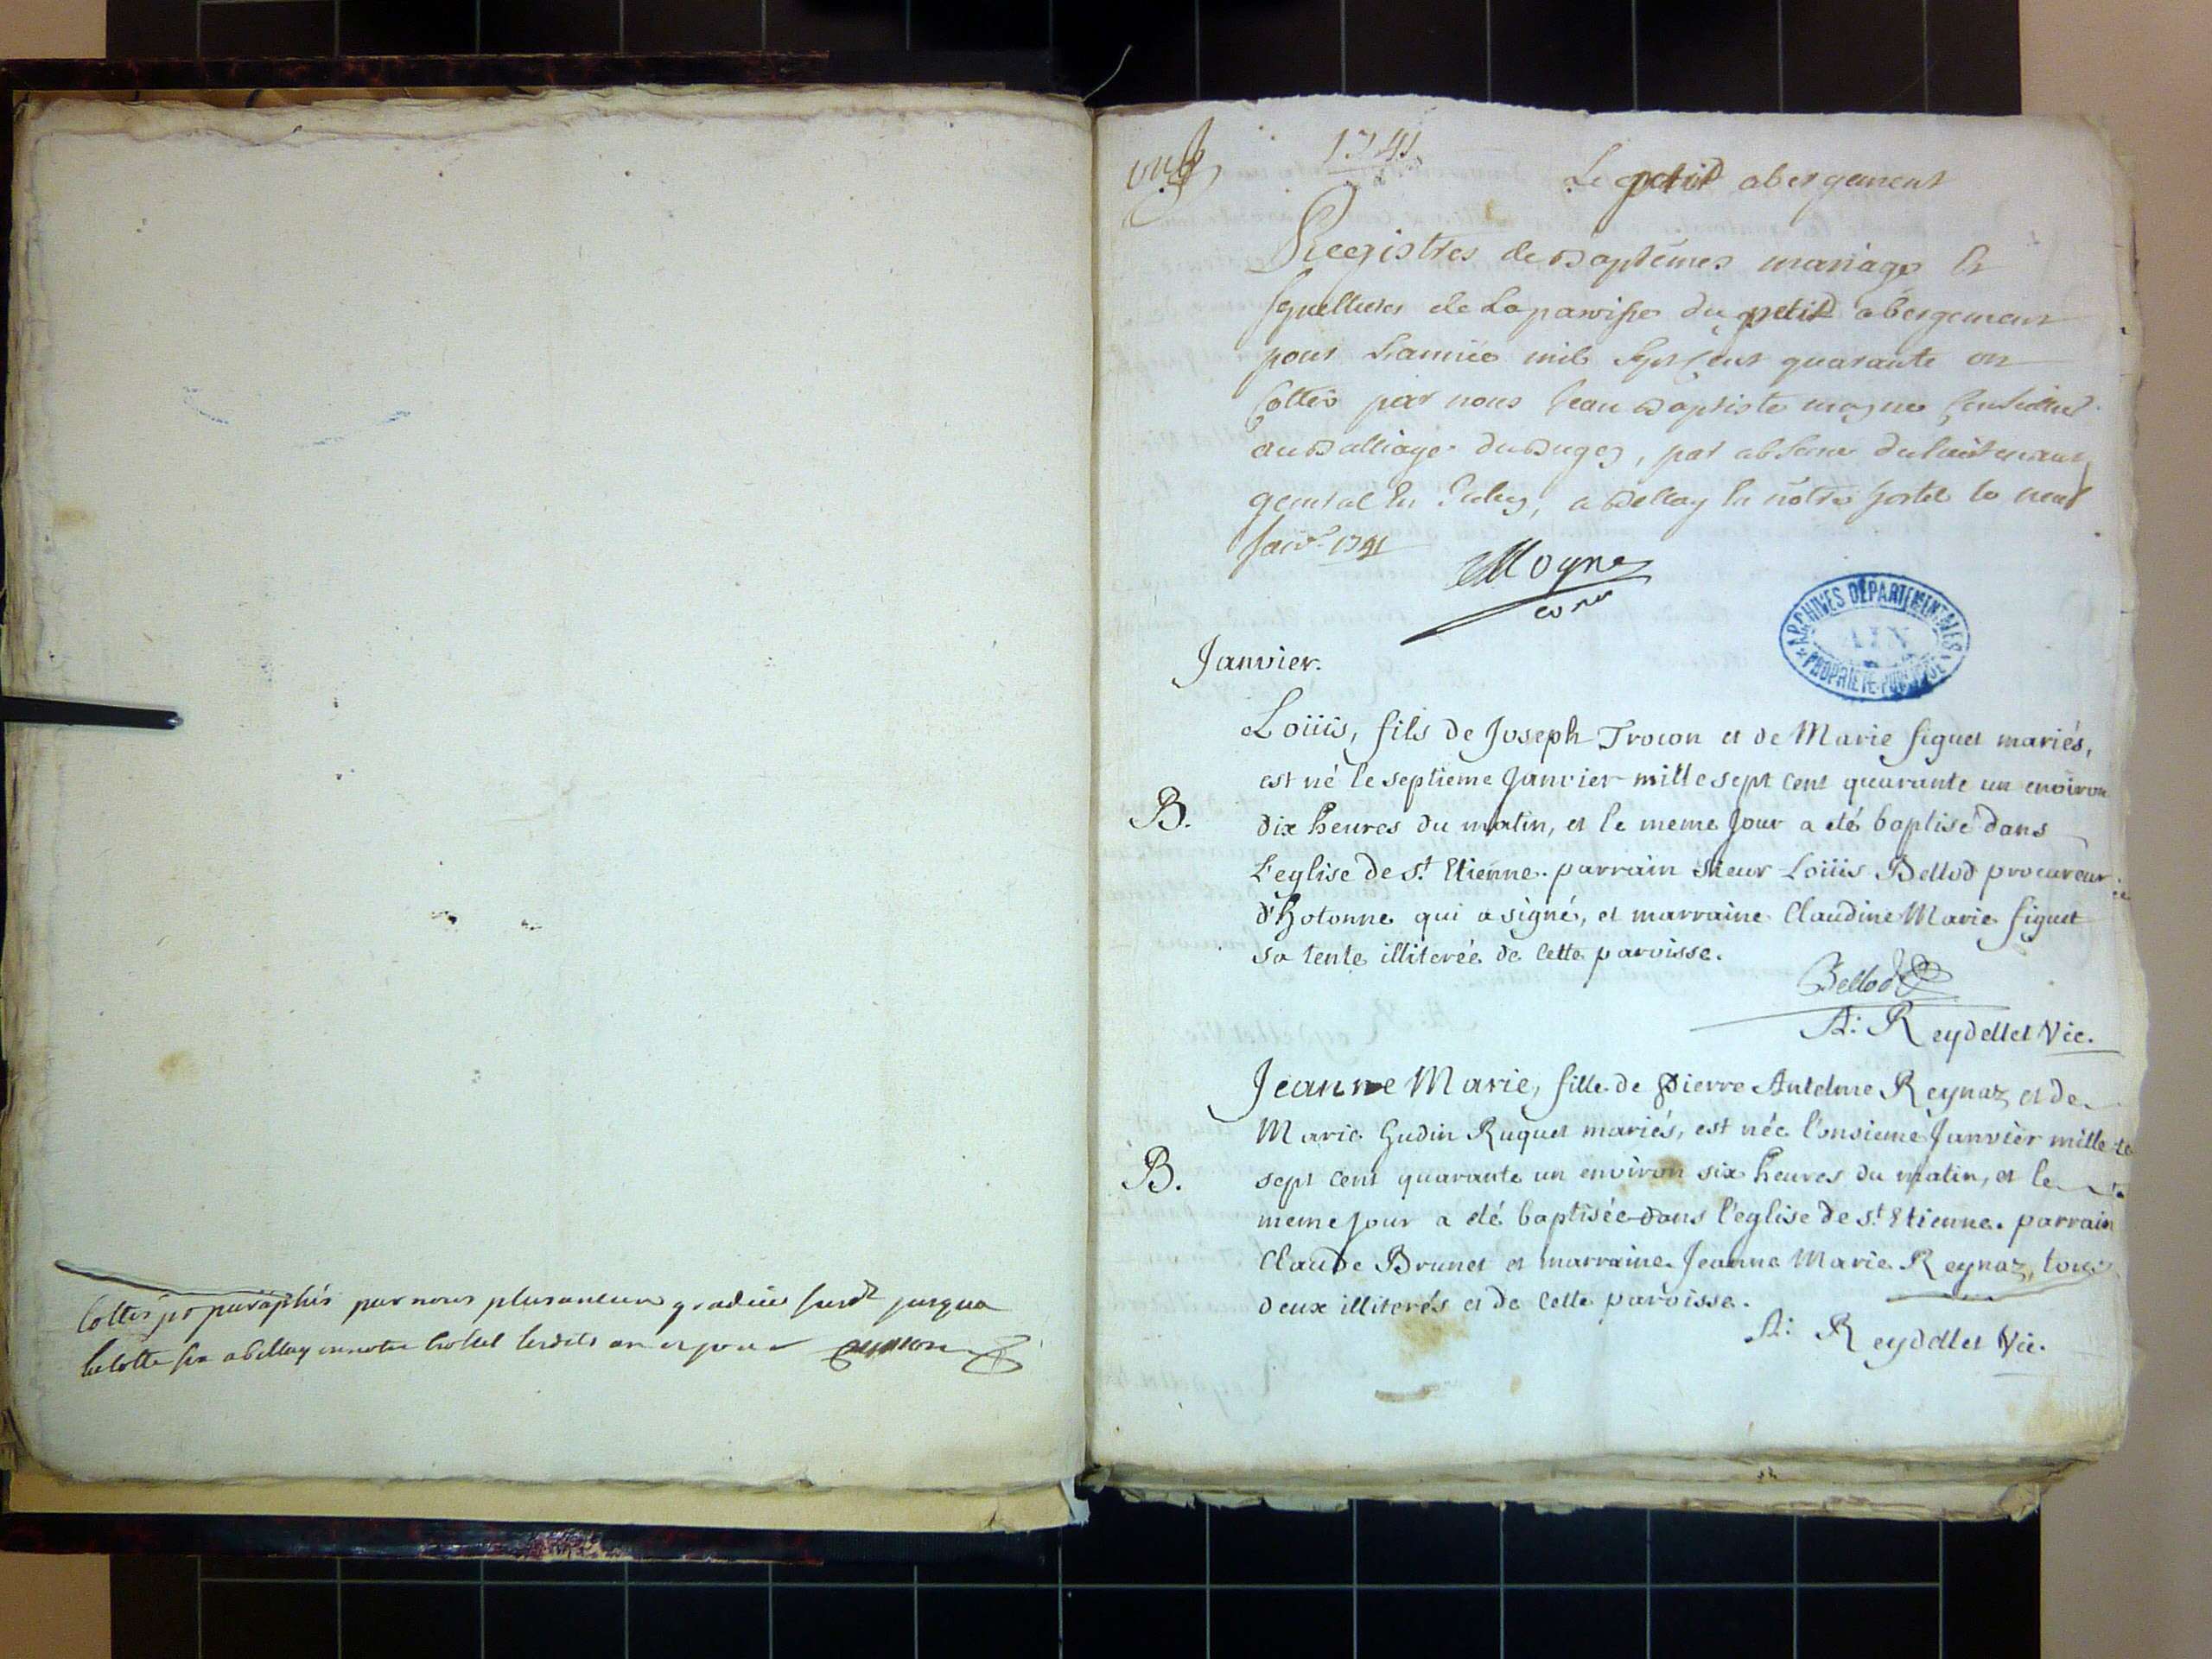 Cottés et paraphés par nous plus ancien gradué susd.t jusqua
la cotte six a bellay en notre hostel lesdits an et jour
un
1741
Le petit abergement
Reegistres de Baptêmes mariage Et
sepultures de La paroisse du petit abergement
pour Lannéé mil Sept Cent quarante on
Cottés par nous Jean Baptiste mogne Conseiller
au Balliage du Bugey, par absence du lieutenant
general En Bugey, a Bellay En nôtre hostel le neuf
Janv.r 1741
Mogne
Janvier.
Loüis, fils de Joseph Trocon et de Marie figuet mariés,
est né le septieme Janvier mille sept cent quarante un environ
B. dix heures du matin, et le meme Jour a eté baptisé dans
L'eglise de s.t Etienne. parrain sieur Loüis Bellod procureur
d'hotonne qui a signé, et marraine Claudine Marie figuet
sa tente illiterée de cette paroisse.
Bellod
A: Reydellet Vic.
Jeanne Marie, fille de Pierre Antelme Reynaz et de
Marie Gudin Ruquet mariés, est née l'onsieme Janvier mille
B. sept cent quarante un environ six heures du matin, et le
meme Jour a eté baptisée dans l'eglise de s.t Etienne. parrain
Claude Brunet et marraine Jeanne Marie Reynaz, tous
deux illiterés et de cette paroisse.
A: Reydellet Vic.
ARCHIVES DÉPARTEMENTALES
AIN
PROPRIÉTÉ PUBLIQUE